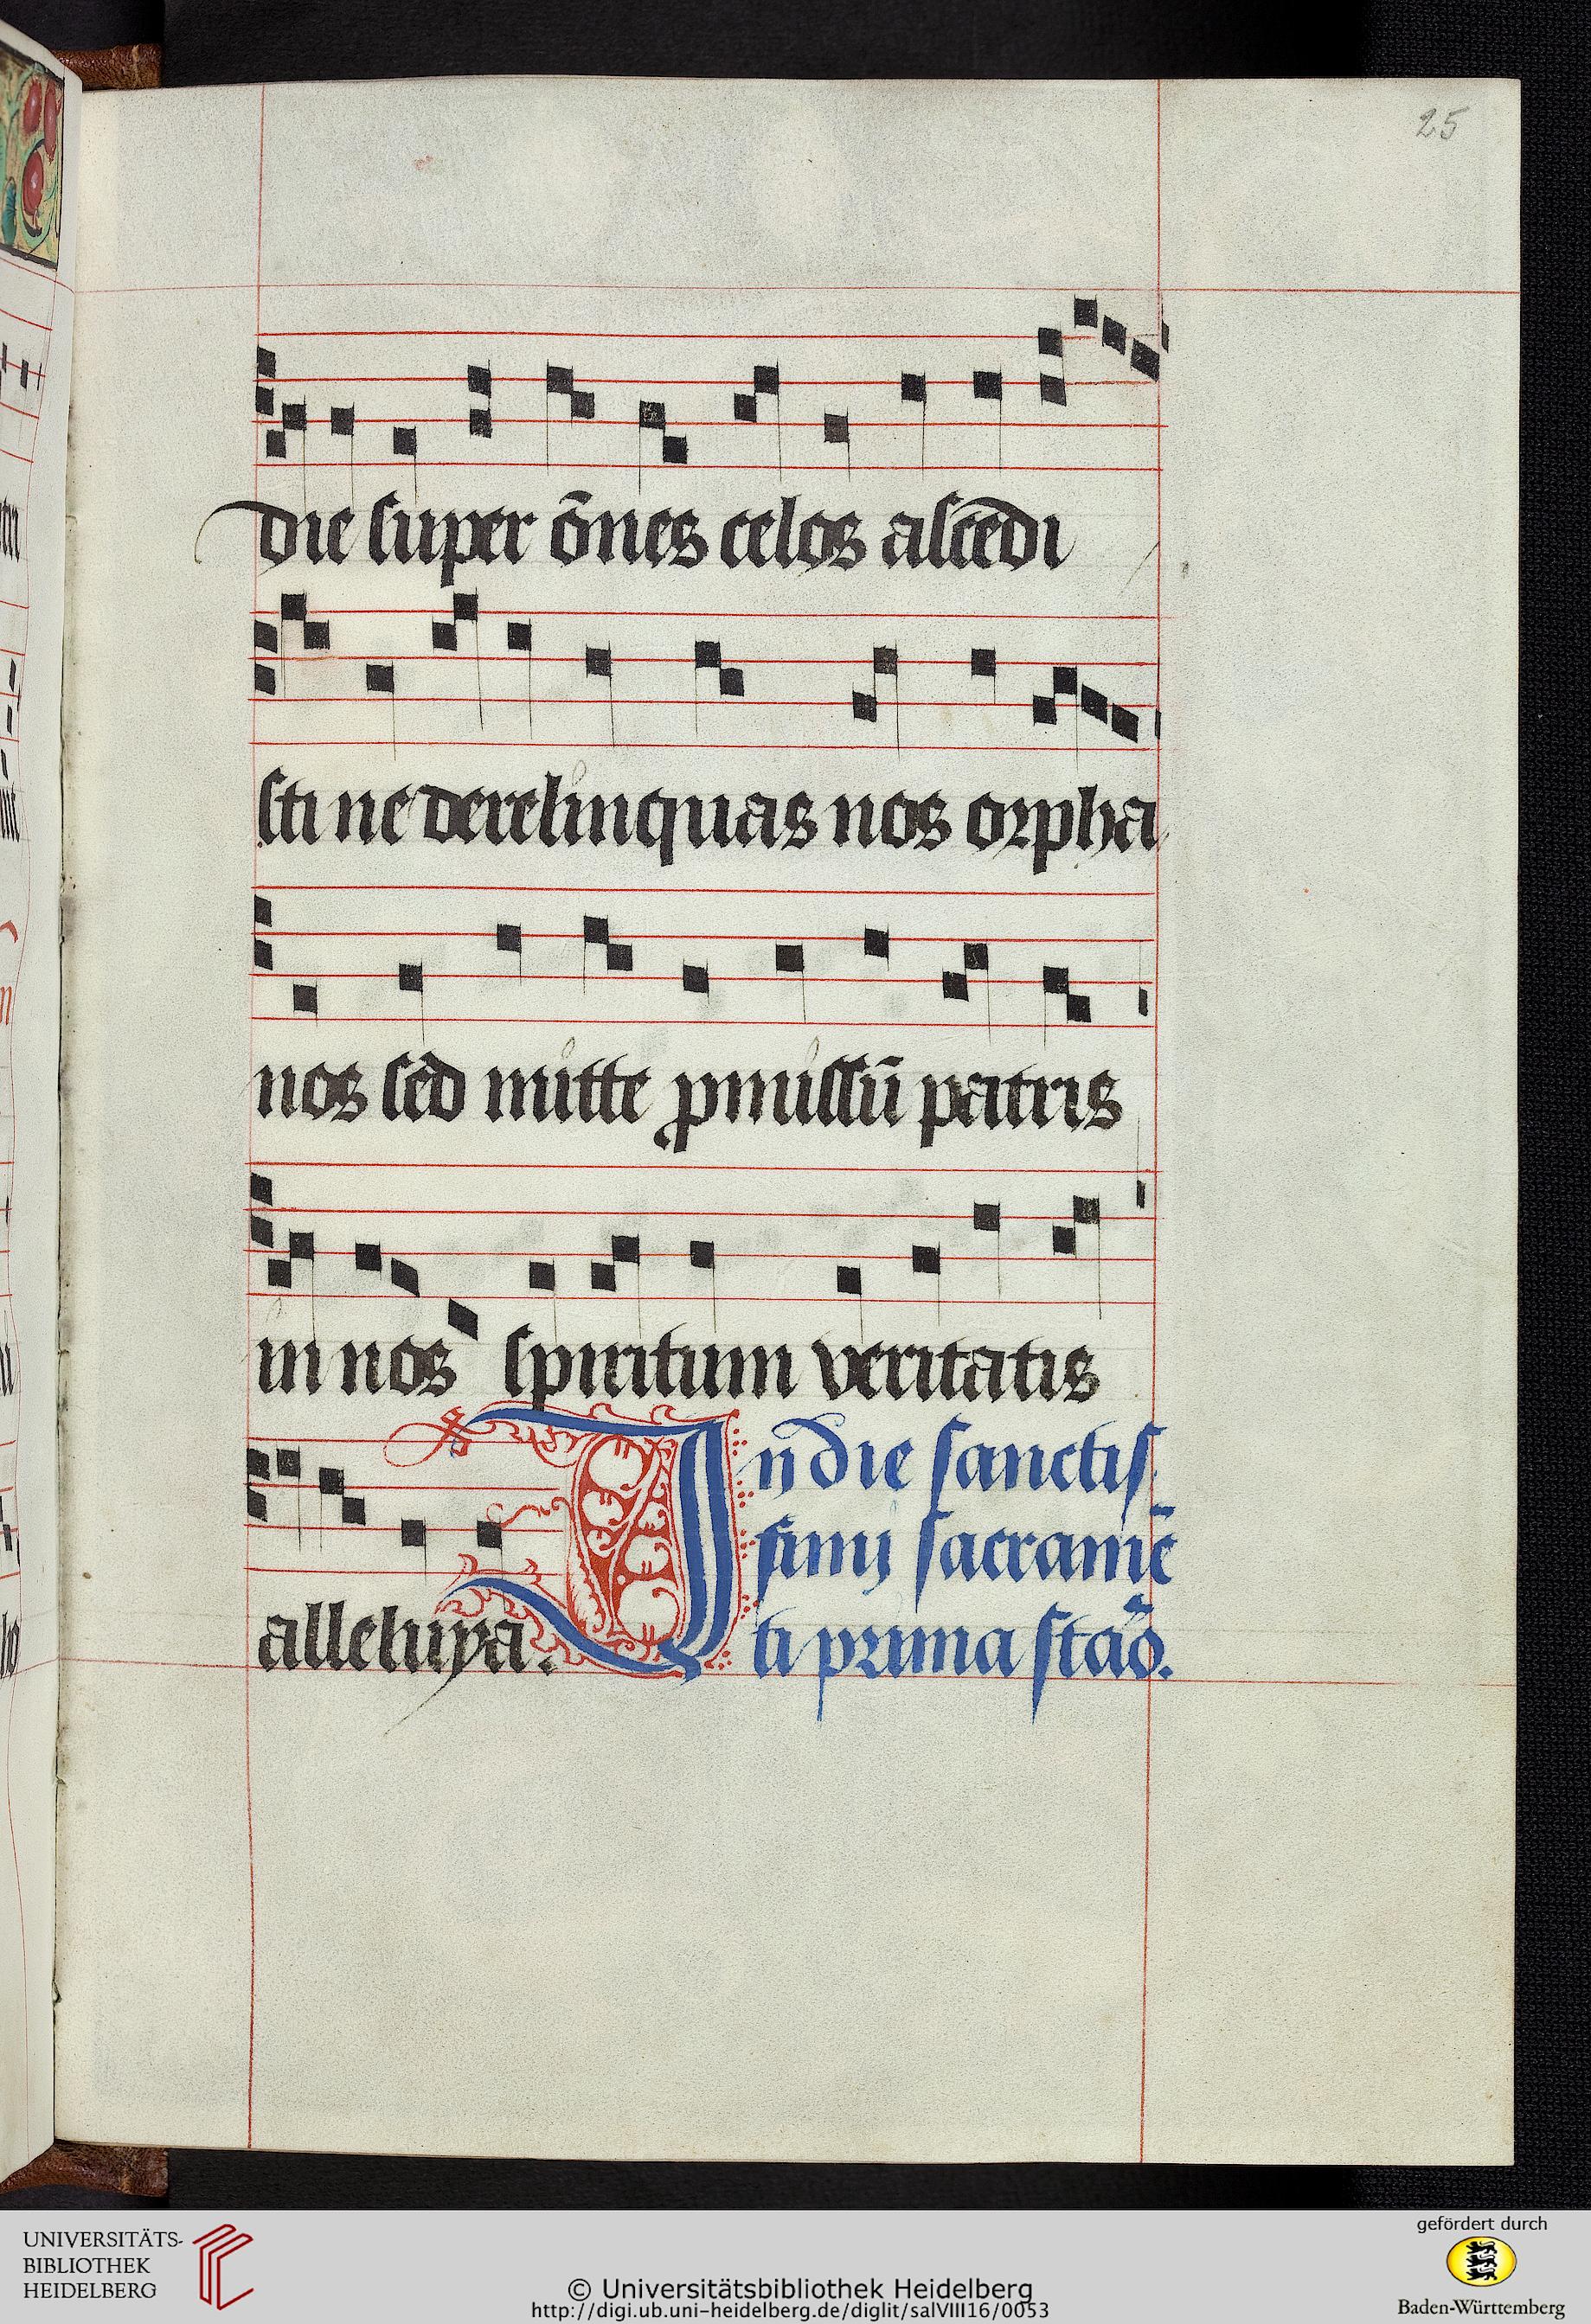 25
die super ōnes celos ascēdi
sti ne derelinquas nos orpha
nos sed mitte ꝓmissū patris
in nos spiritum veritatis
alleluya.
In die sanctis
simi sacramē
ti prima stāo.
UNIVERSITÄTS-
BIBLIOTHEK
HEIDELBERG
© Universitätsbibliothek Heidelberg
http://digi.ub.uni-heidelberg.de/diglit/salVIII16/0053
gefördert durch
Baden-Württemberg